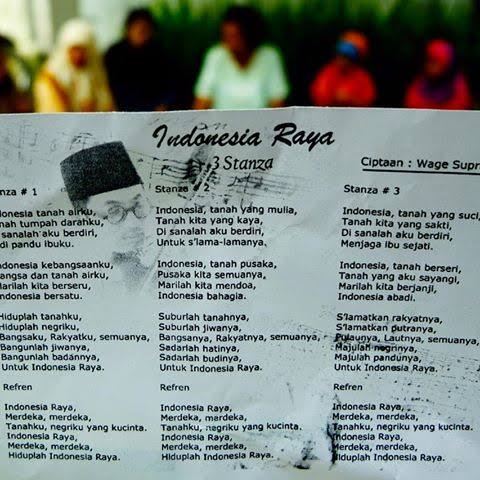 Indonesia Raya
3 Stanza
Ciptaan : Wage Supr
nza # 1
donesia tanah airku,
anah tumpah darahku,
i sanalah aku berdiri,
di pandu ibuku.
ndonesia kebangsaanku,
angsa dan tanah airku,
Marilah kita berseru,
ndonesia bersatu.
Hiduplah tanahku,
Hiduplah negriku,
Bangsaku, Rakyatku, semuanya,
Bangunlah jiwanya,
Bangunlah badannya,
Untuk Indonesia Raya.
Refren
Indonesia Raya,
Merdeka, merdeka,
Tanahku, negriku yang kucinta.
Indonesia Raya,
Merdeka, merdeka,
Hiduplah Indonesia Raya.
Stanza # 2
Indonesia, tanah yang mulia,
Tanah kita yang kaya,
Di sanalah aku berdiri,
Untuk s'lama-lamanya.
Indonesia, tanah pusaka,
Pusaka kita semuanya,
Marilah kita mendoa,
Indonesia bahagia.
Suburlah tanahnya,
Suburlah jiwanya,
Bangsanya, Rakyatnya, semuanya,
Sadarlah hatinya,
Sadarlah budinya,
Untuk Indonesia Raya.
Refren
Indonesia Raya,
Merdeka, merdeka,
Tanahku, negriku yang kucinta.
Indonesia Raya,
Merdeka, merdeka,
Hiduplah Indonesia Raya.
Stanza # 3
Indonesia, tanah yang suci,
Tanah kita yang sakti,
Di sanalah aku berdiri,
Menjaga ibu sejati.
Indonesia, tanah berseri,
Tanah yang aku sayangi,
Marilah kita berjanji,
Indonesia abadi.
S'lamatkan rakyatnya,
S'lamatkan putranya,
Pulaunya, Lautnya, semuanya,
Majulah negrinya,
Majulah pandunya,
Untuk Indonesia Raya.
Refren
Indonesia Raya,
Merdeka, merdeka,
Tanahku, negriku yang kucinta.
Indonesia Raya,
Merdeka, merdeka,
Hiduplah Indonesia Raya.